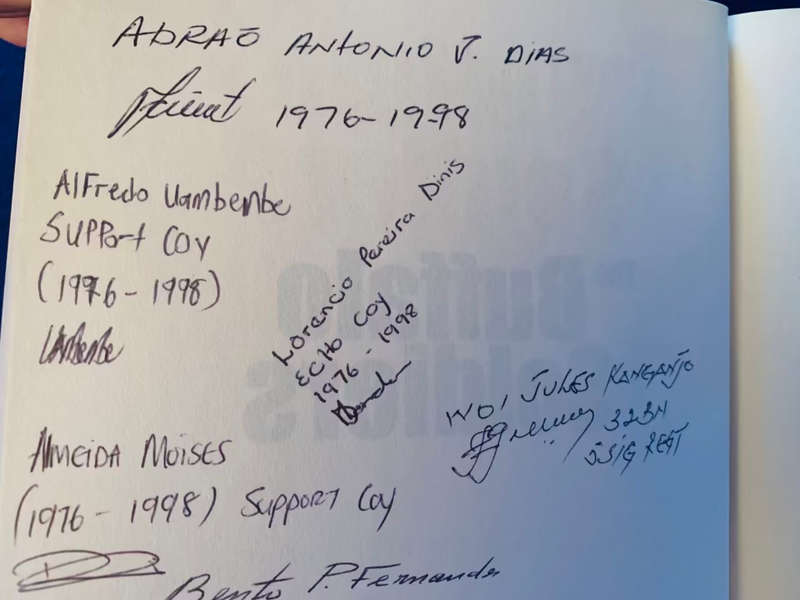 ADRAÕ ANTONIO J. DIAS
1976-1998
Alfredo Uambembe
Support Coy
(1976 - 1998)
Uambembe
Lorencio Pereira Dinis
ECHO Coy
1976 - 1998
WO1 JULES KANGANJO
32BN
5SIG REGT
ALMEIDA MOISES
(1976 - 1998) Support Coy
Bento P. Fernando
Buffalo
Soldiers